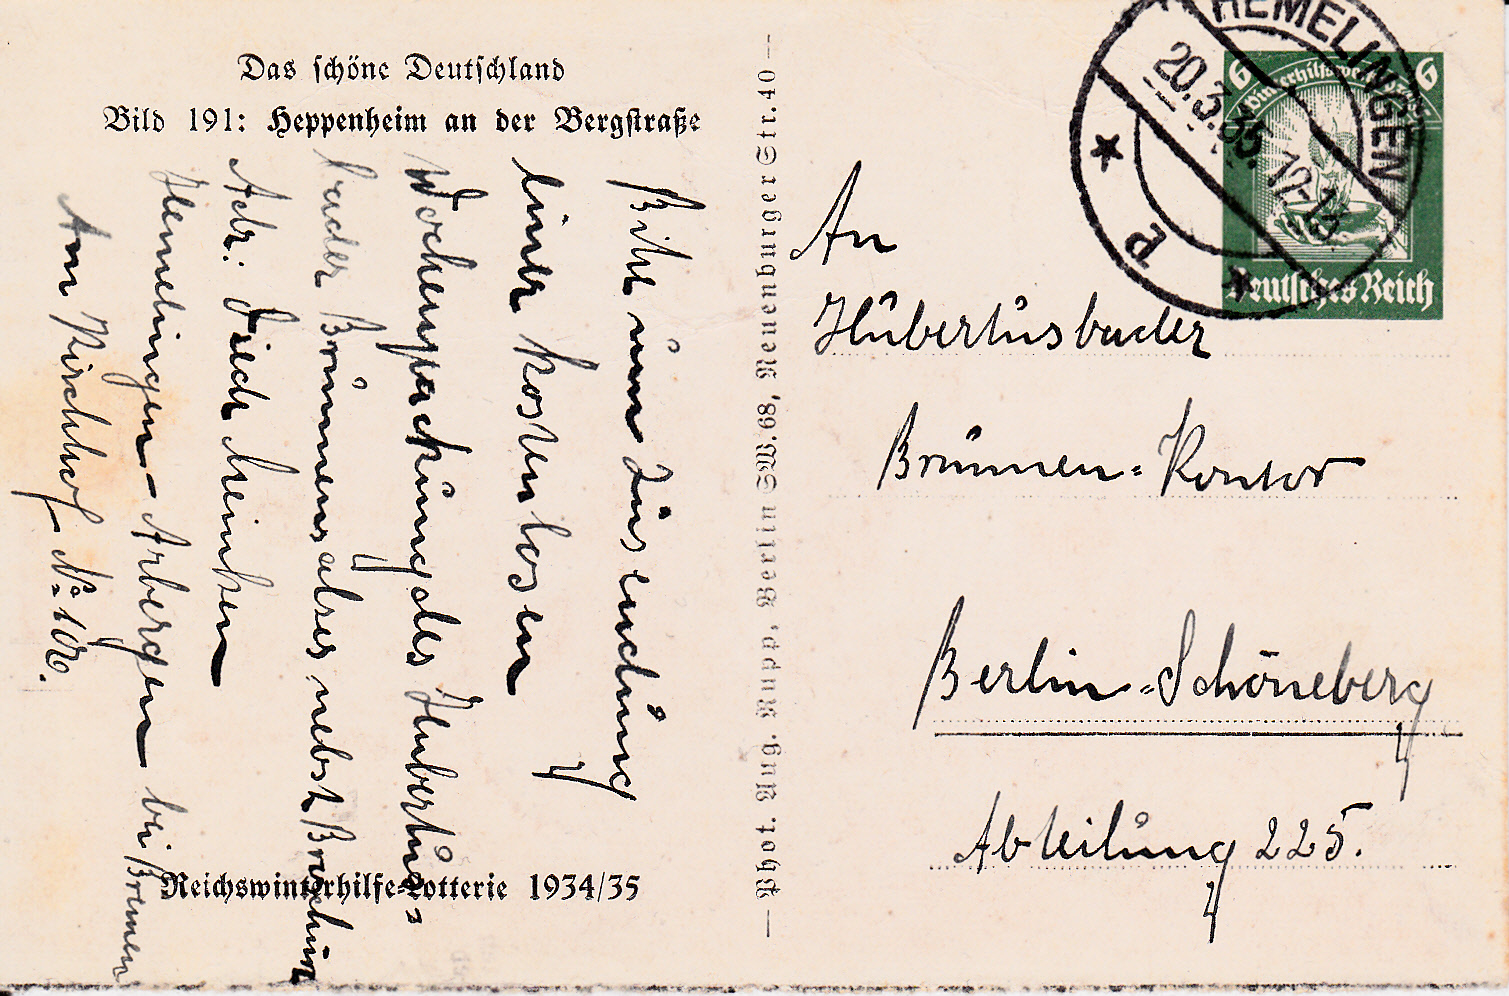 Das schöne Deutschland
Bild 191: Heppenheim an der Bergstraße
Bitte um Zusendung
einer kostenlosen
Wochenpackung des Hubertus-
bader Brunnensalzes nebst Broschüre
Adr.: Died. Meinken
Hemelingen-Arbergen bei Bremen
Am Kirchhof No
Reichswinterhilfe-Lotterie 1934/35
— Phot. Aug. Rupp, Berlin SW. 68, Neuenburger Str. 40 —
HEMELINGEN
20.3.35. 12-13
6 Winterhilfswerk 6
Deutsches Reich
An
Hubertusbader
Brunnen-Kontor
Berlin-Schöneberg
Abteilung 225.